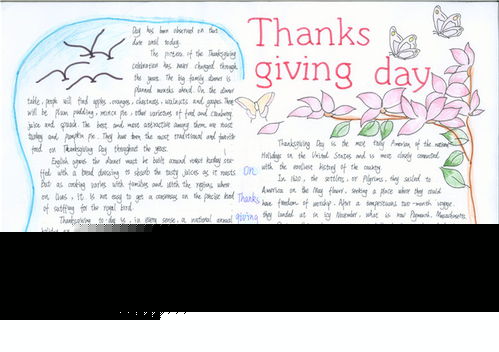 Thanks
giving day
Day has been observed on this
date until today.
The pattern of the Thanksgiving
celebration has never changed through
the years. The big family dinner is
planned months ahead. On the dinner
table, people will find apples, oranges, chestnuts, walnuts and grapes. There
will be plum pudding, mince pie, other varieties of food and cranberry
juice and squash. The best and most attractive among them are roast
turkey and pumpkin pie. They have been the most traditional and favorite
food on Thanksgiving Day throughout the years.
agrees the dinner must be built around roast turkey stu-
ffed with a bread dressing to absorb the tasty juices as it roasts.
But as cooking varies with families and with the regions where
on lives, it is not easy to get a consensus on the precise kind
of stuffing for the royal bird.
Thanksgiving today is, in every sense, a national annual
holiday on
On
Thanks
giving
Thanksgiving Day is the most truly American of the national
Holidays in the United States and is most closely connected
with the earliest history of the country.
In 1620, the settlers, or Pilgrims, they sailed to
America on the May flower, seeking a place where they could
have freedom of worship. After a tempestuous two-month voyage
they landed at in icy November, what is now Plymouth, Massachusetts.